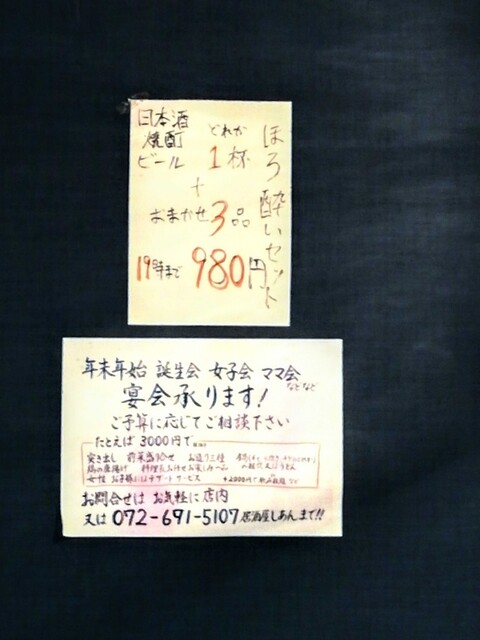 ほろ酔いセット
日本酒
焼酎
ビール
どれか
1杯
+
おまかせ 3品
19時まで 980円
年末年始 誕生会 女子会 ママ会
などなど
宴会承ります!
ご予算に応じてご相談下さい
たとえば 3000円で
突き出し 前菜盛り合せ お造り三種
鶏の唐揚げ
女性 お子様にはデザートサービス
お問合せは お気軽に 店内
又は 072-691-5107 居酒屋しあんまで!!